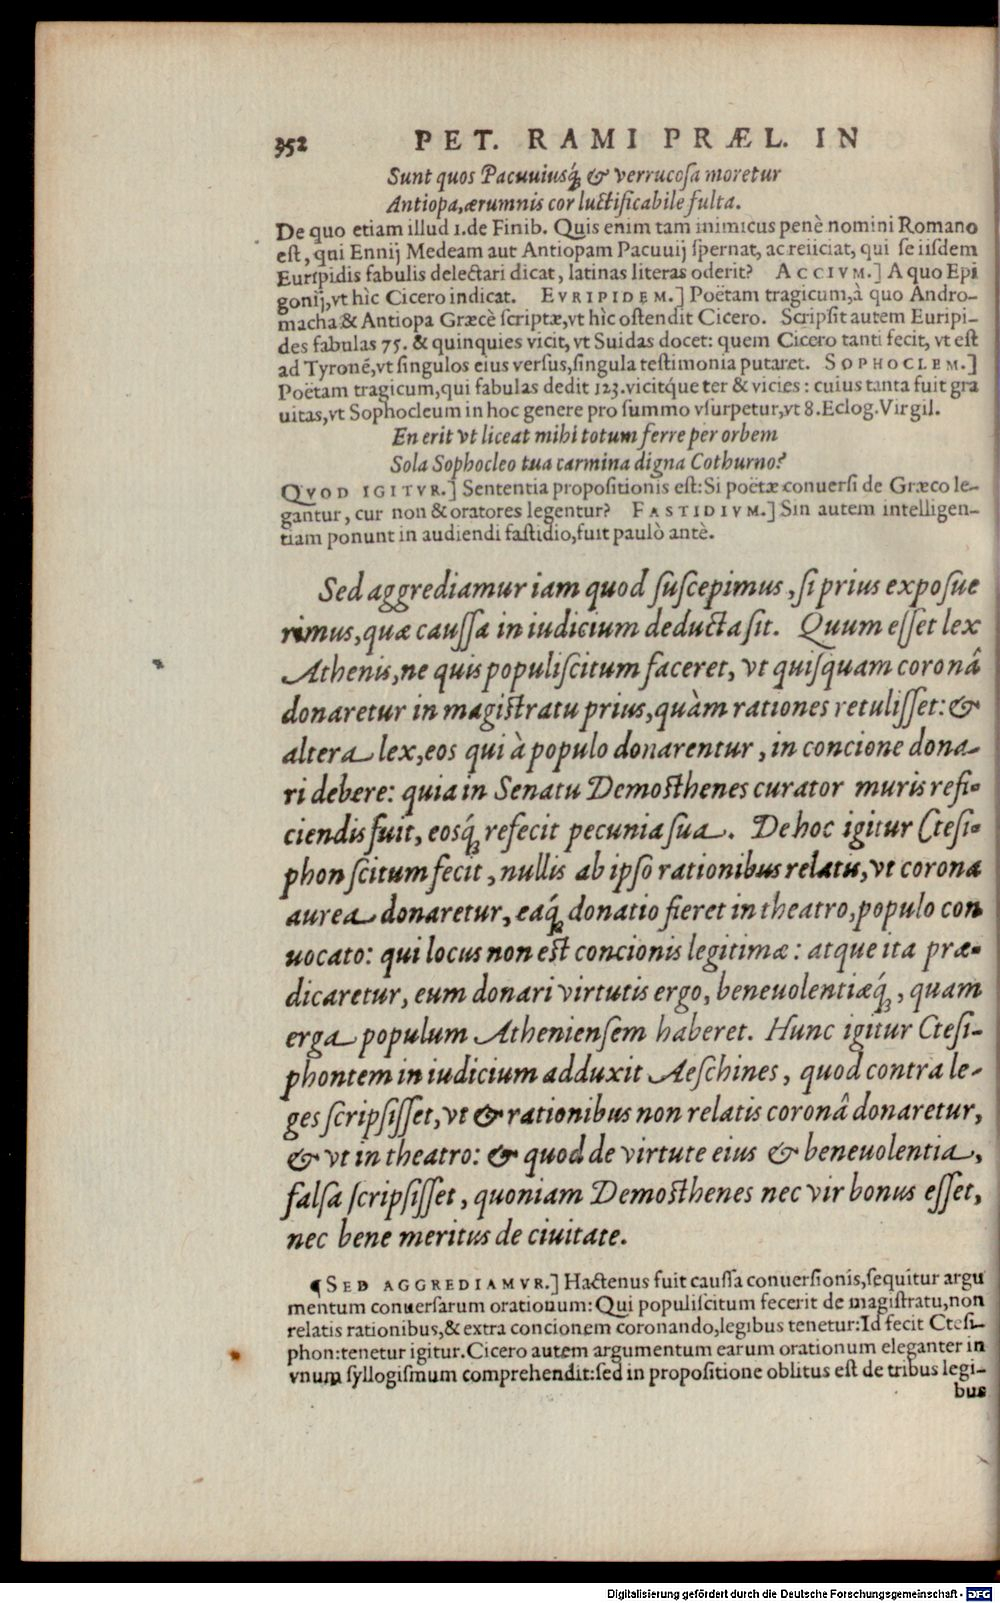 352 PET. RAMI PRÆL. IN
Sunt quos Pacuuiusq́; & verrucosa moretur
Antiopa, ærumnis cor luctificabile fulta.
De quo etiam illud 1. de Finib. Quis enim tam inimicus penè nomini Romano
est, qui Ennij Medeam aut Antiopam Pacuuij spernat, ac reiiciat, qui se iisdem
Euripidis fabulis delectari dicat, latinas literas oderit? ACCIVM.] A quo Epi
gonij, vt hìc Cicero indicat. EVRIPIDEM.] Poëtam tragicum, à quo Andro-
macha & Antiopa Græcè scriptæ, vt hìc ostendit Cicero. Scripsit autem Euripi-
des fabulas 75. & quinquies vicit, vt Suidas docet: quem Cicero tanti fecit, vt est
ad Tyronẽ, vt singulos eius versus, singula testimonia putaret. SOPHOCLEM.]
Poëtam tragicum, qui fabulas dedit 123. vicitq́ue ter & vicies: cuius tanta fuit gra
uitas, vt Sophocleum in hoc genere pro summo vsurpetur, vt 8. Eclog. Virgil.
En erit vt liceat mihi totum ferre per orbem
Sola Sophocleo tua carmina digna Cothurno?
QVOD IGITVR.] Sententia propositionis est: Si poëtæ conuersi de Græco le-
gantur, cur non & oratores legentur? FASTIDIVM.] Sin autem intelligen-
tiam ponunt in audiendi fastidio, fuit paulò antè.
Sed aggrediamur iam quod suscepimus, si prius exposue
rimus, quæ caussa in iudicium deducta sit. Quum esset lex
Athenis, ne quis populiscitum faceret, vt quisquam coronâ
donaretur in magistratu prius, quàm rationes retulisset: &
altera lex, eos qui à populo donarentur, in concione dona-
ri debere: quia in Senatu Demosthenes curator muris refi-
ciendis fuit, eosq́; refecit pecunia sua. De hoc igitur Ctesi-
phon scitum fecit, nullis ab ipso rationibus relatis, vt corona
aurea donaretur, eaq́; donatio fieret in theatro, populo con
uocato: qui locus non est concionis legitimæ: atque ita præ-
dicaretur, eum donari virtutis ergo, beneuolentiæq́;, quam
erga populum Atheniensem haberet. Hunc igitur Ctesi-
phontem in iudicium adduxit Aeschines, quod contra le-
ges scripsisset, vt & rationibus non relatis coronâ donaretur,
& vt in theatro: & quod de virtute eius & beneuolentia,
falsa scripsisset, quoniam Demosthenes nec vir bonus esset,
nec bene meritus de ciuitate.
¶SED AGGREDIAMVR.] Hactenus fuit caussa conuersionis, sequitur argu
mentum conuersarum orationum: Qui populiscitum fecerit de magistratu, non
relatis rationibus, & extra concionem coronando, legibus tenetur: Id fecit Ctesi-
phon: tenetur igitur. Cicero autem argumentum earum orationum eleganter in
vnum syllogismum comprehendit: sed in propositione oblitus est de tribus legi-
bus
Digitalisierung gefördert durch die Deutsche Forschungsgemeinschaft - DFG